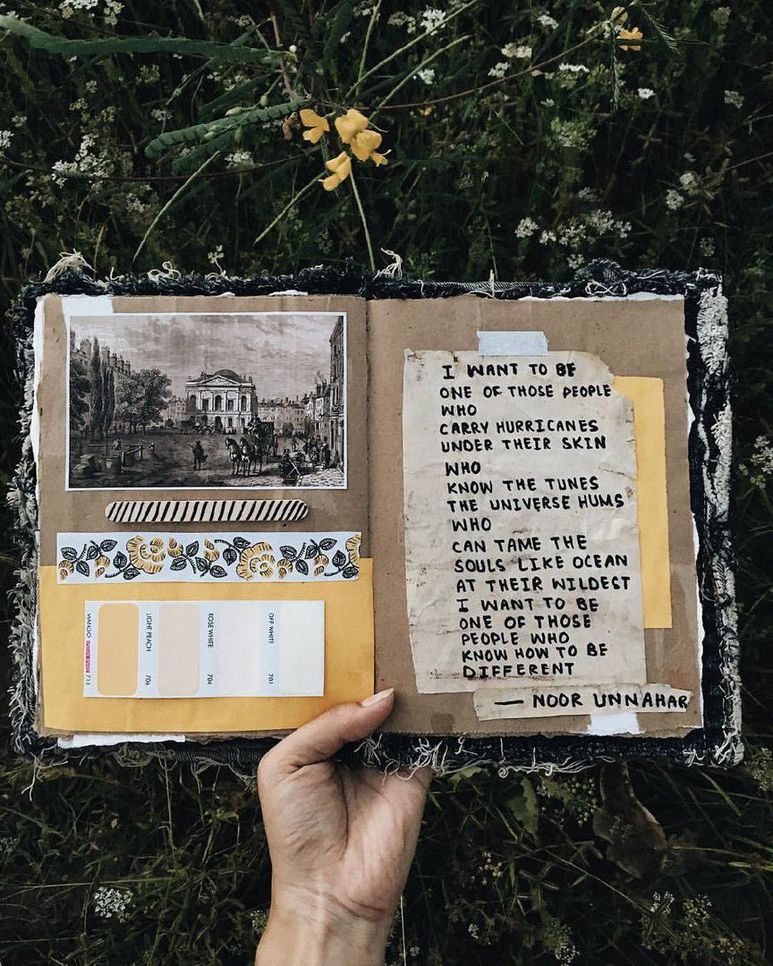 MANGO
713
LIGHT PEACH
706
ROSE WHITE
704
OFF WHITE
781
I WANT TO BE
ONE OF THOSE PEOPLE
WHO
CARRY HURRICANES
UNDER THEIR SKIN
WHO
KNOW THE TUNES
THE UNIVERSE HUMS
WHO
CAN TAME THE
SOULS LIKE OCEAN
AT THEIR WILDEST
I WANT TO BE
ONE OF THOSE
PEOPLE WHO
KNOW HOW TO BE
DIFFERENT
— NOOR UNNAHAR